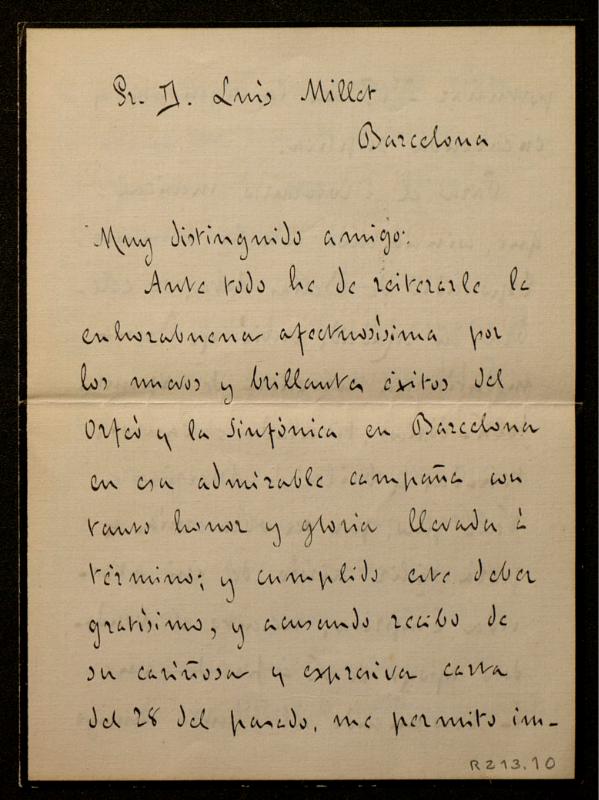 Sr. D. Luis Millet
Barcelona
Muy distinguido amigo:
Ante todo he de reiterarle la
enhorabuena afectuosísima por
los nuevos y brillantes éxitos del
Orfeó y la Sinfónica en Barcelona
en esa admirable campaña con
tanto honor y gloria llevada á
término; y cumplido este deber
gratísimo, y acusando recibo de
su cariñosa y expresiva carta
del 28 del pasado, me permito im-
R213.10